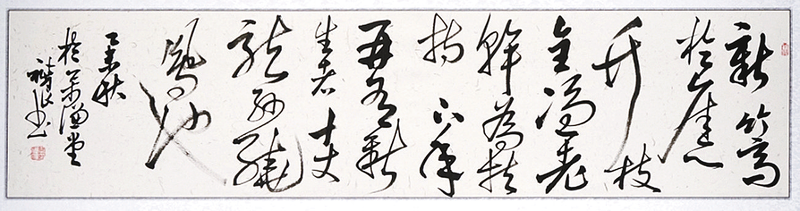 新竹高
於舊
竹枝
全憑老
幹為扶
持下年
再有新
生者十丈
龍孫繞
鳳池
乙未秋
於謙堂
書